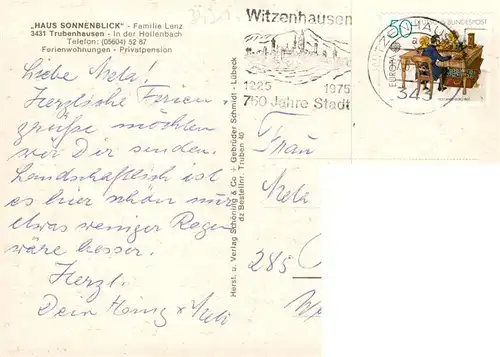 „HAUS SONNENBLICK" - Familie Lenz
3431 Trubenhausen - In der Hollenbach
Telefon: (05604) 52 87
Ferienwohnungen - Privatpension
Liebe Mela!
Herzliche Ferien-
grüße möchten
wir Dir senden.
Landschaftlich ist
es hier schön nur
etwas weniger Regen
wäre besser.
Herzl.
Dein
Herst. u. Verlag Schöning & Co + Gebrüder Schmidt - Lübeck
dz Bestellnr. Truben 40
Witzenhausen
1225 1975
750 Jahre Stadt
WITZENHAUSEN
343
50
EUROPA
BUNDESPOST
Frau
Mela
285